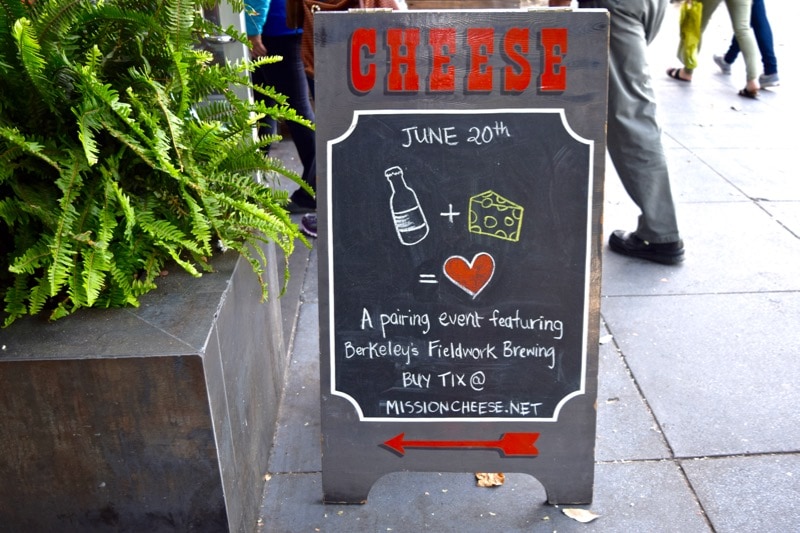 CHEESE
JUNE 20th
+
=
A pairing event featuring
Berkeley's Fieldwork Brewing
BUY TIX @
MISSIONCHEESE.NET